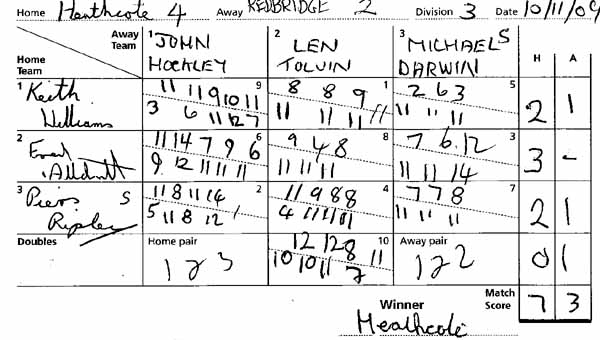 Home Heathcote 4 Away REDBRIDGE 2 Division 3 Date 10/11/09
Away Team
Home Team
1 JOHN HOCKLEY
2 LEN TOLVIN
3 MICHAEL S DARWIN
H A
1 Keith Williams
9
11 11 9 10 11
3 6 11 12 7
1
8 8 9
11 11 11
5
2 6 3
11 11 11
2 1
2
6
11 14 7 9 6
9 12 11 11 11
8
9 4 8
11 11 11
3
7 6 12
11 11 14
3 -
3 Piers S Ripley
2
11 8 11 14
5 11 8 12
4
11 9 8 8
4 11 11 11
7
7 7 8
11 11 11
2 1
Doubles
Home pair
1 2 3
10
12 12 8 11
10 10 11 7
Away pair
1 2 2
0 1
Winner
Heathcote
Match Score
7 3